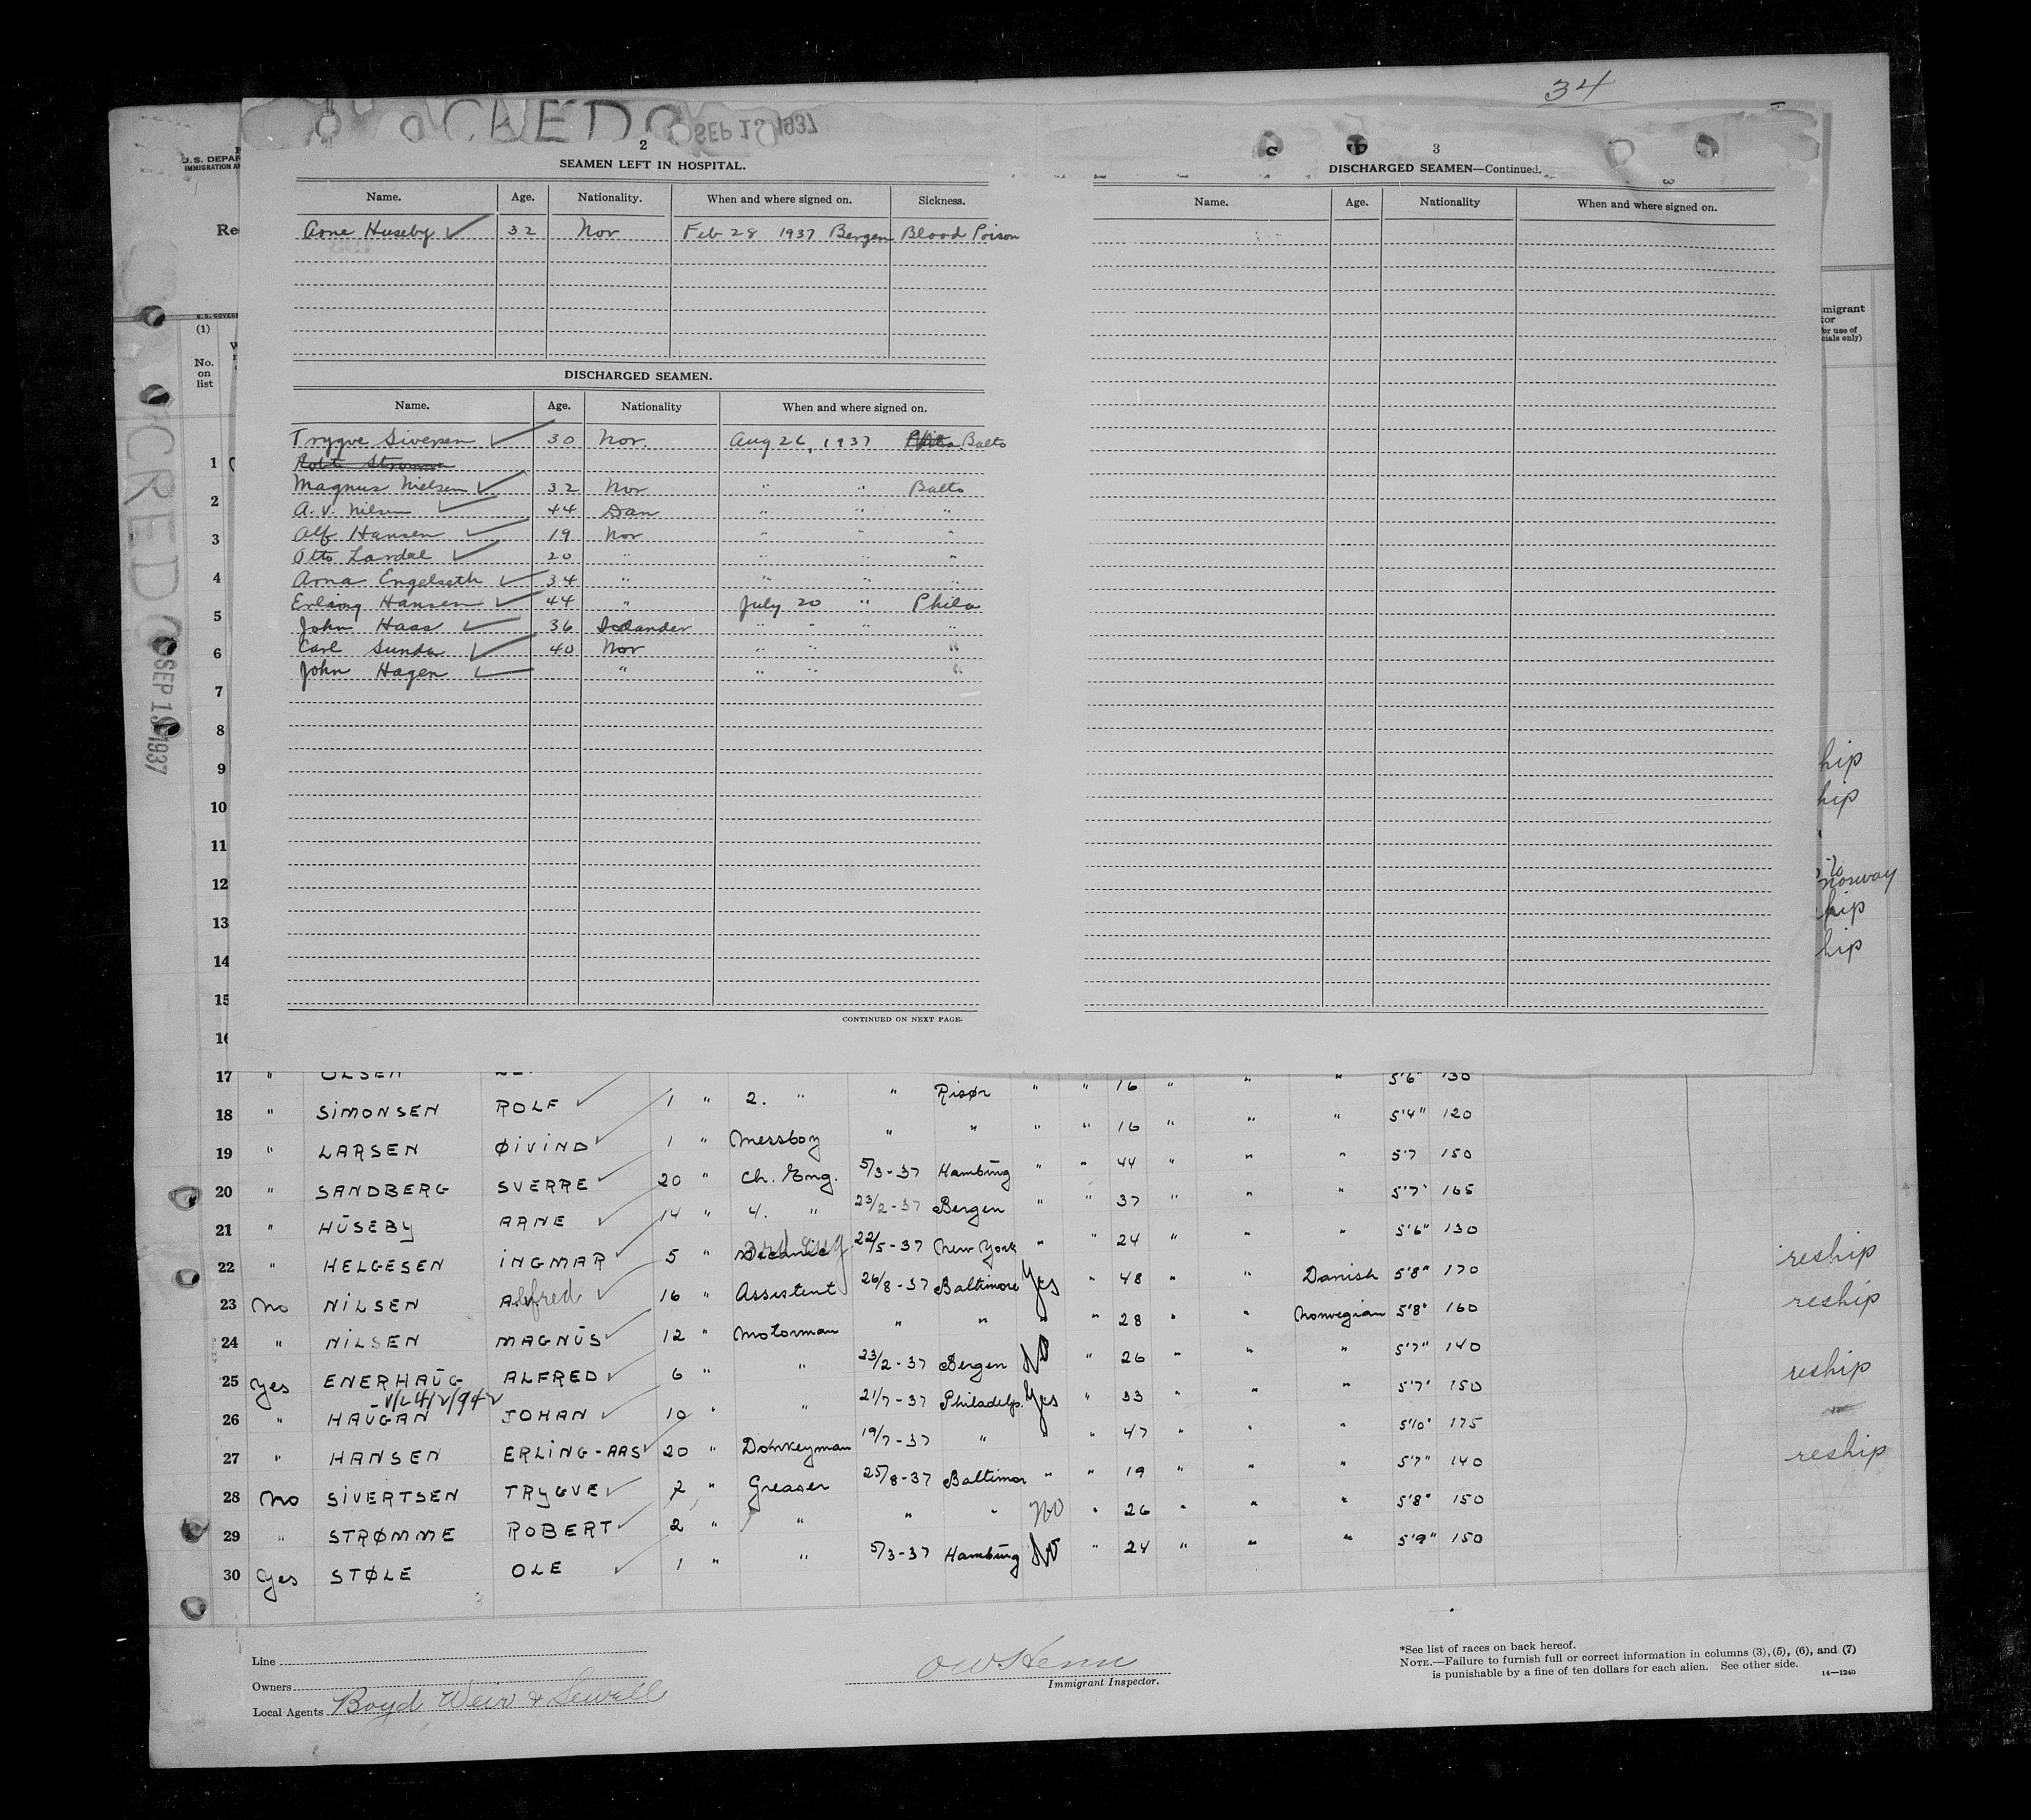 34
CREDO SEP 13 1937
2
SEAMEN LEFT IN HOSPITAL.
Name. Age. Nationality. When and where signed on. Sickness.
Arne Huseby ✓ 32 Nor Feb 28 1937 Bergen Blood Poison
DISCHARGED SEAMEN.
Name. Age. Nationality When and where signed on.
Trygve Siversen ✓ 30 Nor. Aug 26, 1937 Phila Balto
Robt Stromme
Magnus Nielsen ✓ 32 Nor " " Balto
A. V. Nilsen ✓ 44 Dan " " "
Alf Hansen ✓ 19 Nor " " "
Otto Lardal ✓ 20 " " " "
Arna Engelseth ✓ 34 " " " "
Erlaing Hansen ✓ 44 " July 20 " Phila
John Haas ✓ 36 Icelander " " " "
Carl Sunda ✓ 40 Nor " " "
John Hagen ✓ " " " "
CONTINUED ON NEXT PAGE.
3
DISCHARGED SEAMEN—Continued.
Name. Age. Nationality When and where signed on.
U.S. DEPAR
IMMIGRATION AN
Re
U.S. GOVERN
(1)
No. on list
migrant
tor
or use of
cials only)
CREDO SEP 13 1937
1
2
3
4
5
6
7
8
9
10
11
12
13
14
15
16
hip
hip
to
norway
hip
hip
17 " OLSEN 5'6" 130
18 " SIMONSEN ROLF ✓ 1 " 2. " " Risør " " 16 " " " 5'4" 120
19 " LARSEN ØIVIND ✓ 1 " Messboy " " " " 16 " " " 5'7 150
20 " SANDBERG SVERRE ✓ 20 " Ch. Eng. 5/3-37 Hambūrg " " 44 " " " 5'7" 165
21 " HŪSEBY ARNE ✓ 14 " 4. " 23/2-37 Bergen " " 37 " " " 5'6" 130
22 " HELGESEN INGMAR ✓ 5 " 3rd Eng. 22/5-37 New York " " 24 " " Danish 5'8" 170 reship
23 No NILSEN Alfred ✓ 16 " Assistent 26/8-37 Baltimore Yes " 48 " " Norwegian 5'8" 160 reship
24 " NILSEN MAGNŪS ✓ 12 " Motorman " " " " 28 " " " 5'7" 140
25 Yes ENERHAŪG ALFRED ✓ 6 " " 23/2-37 Bergen No " 26 " " " 5'7" 150 reship
26 " HAŪGAN JOHAN ✓ 10 " " 21/7-37 Philadelp. Yes " 33 " " " 5'10" 175
27 " HANSEN ERLING-AAS ✓ 20 " Donkeyman 19/7-37 " " " 47 " " " 5'7" 140 reship
28 No SIVERTSEN TRYGVE ✓ 2 " Greaser 25/8-37 Baltimor " " 19 " " " 5'8" 150
29 " STRØMME ROBERT ✓ 2 " " " " No " 26 " " " 5'9" 150
30 Yes STØLE OLE ✓ 1 " " 5/3-37 Hambūrg No " 24 " " "
Line
Owners
Local Agents Boyd Weir & Sewell
Immigrant Inspector.
*See list of races on back hereof.
NOTE.—Failure to furnish full or correct information in columns (3), (5), (6), and (7)
is punishable by a fine of ten dollars for each alien. See other side.
14—1240